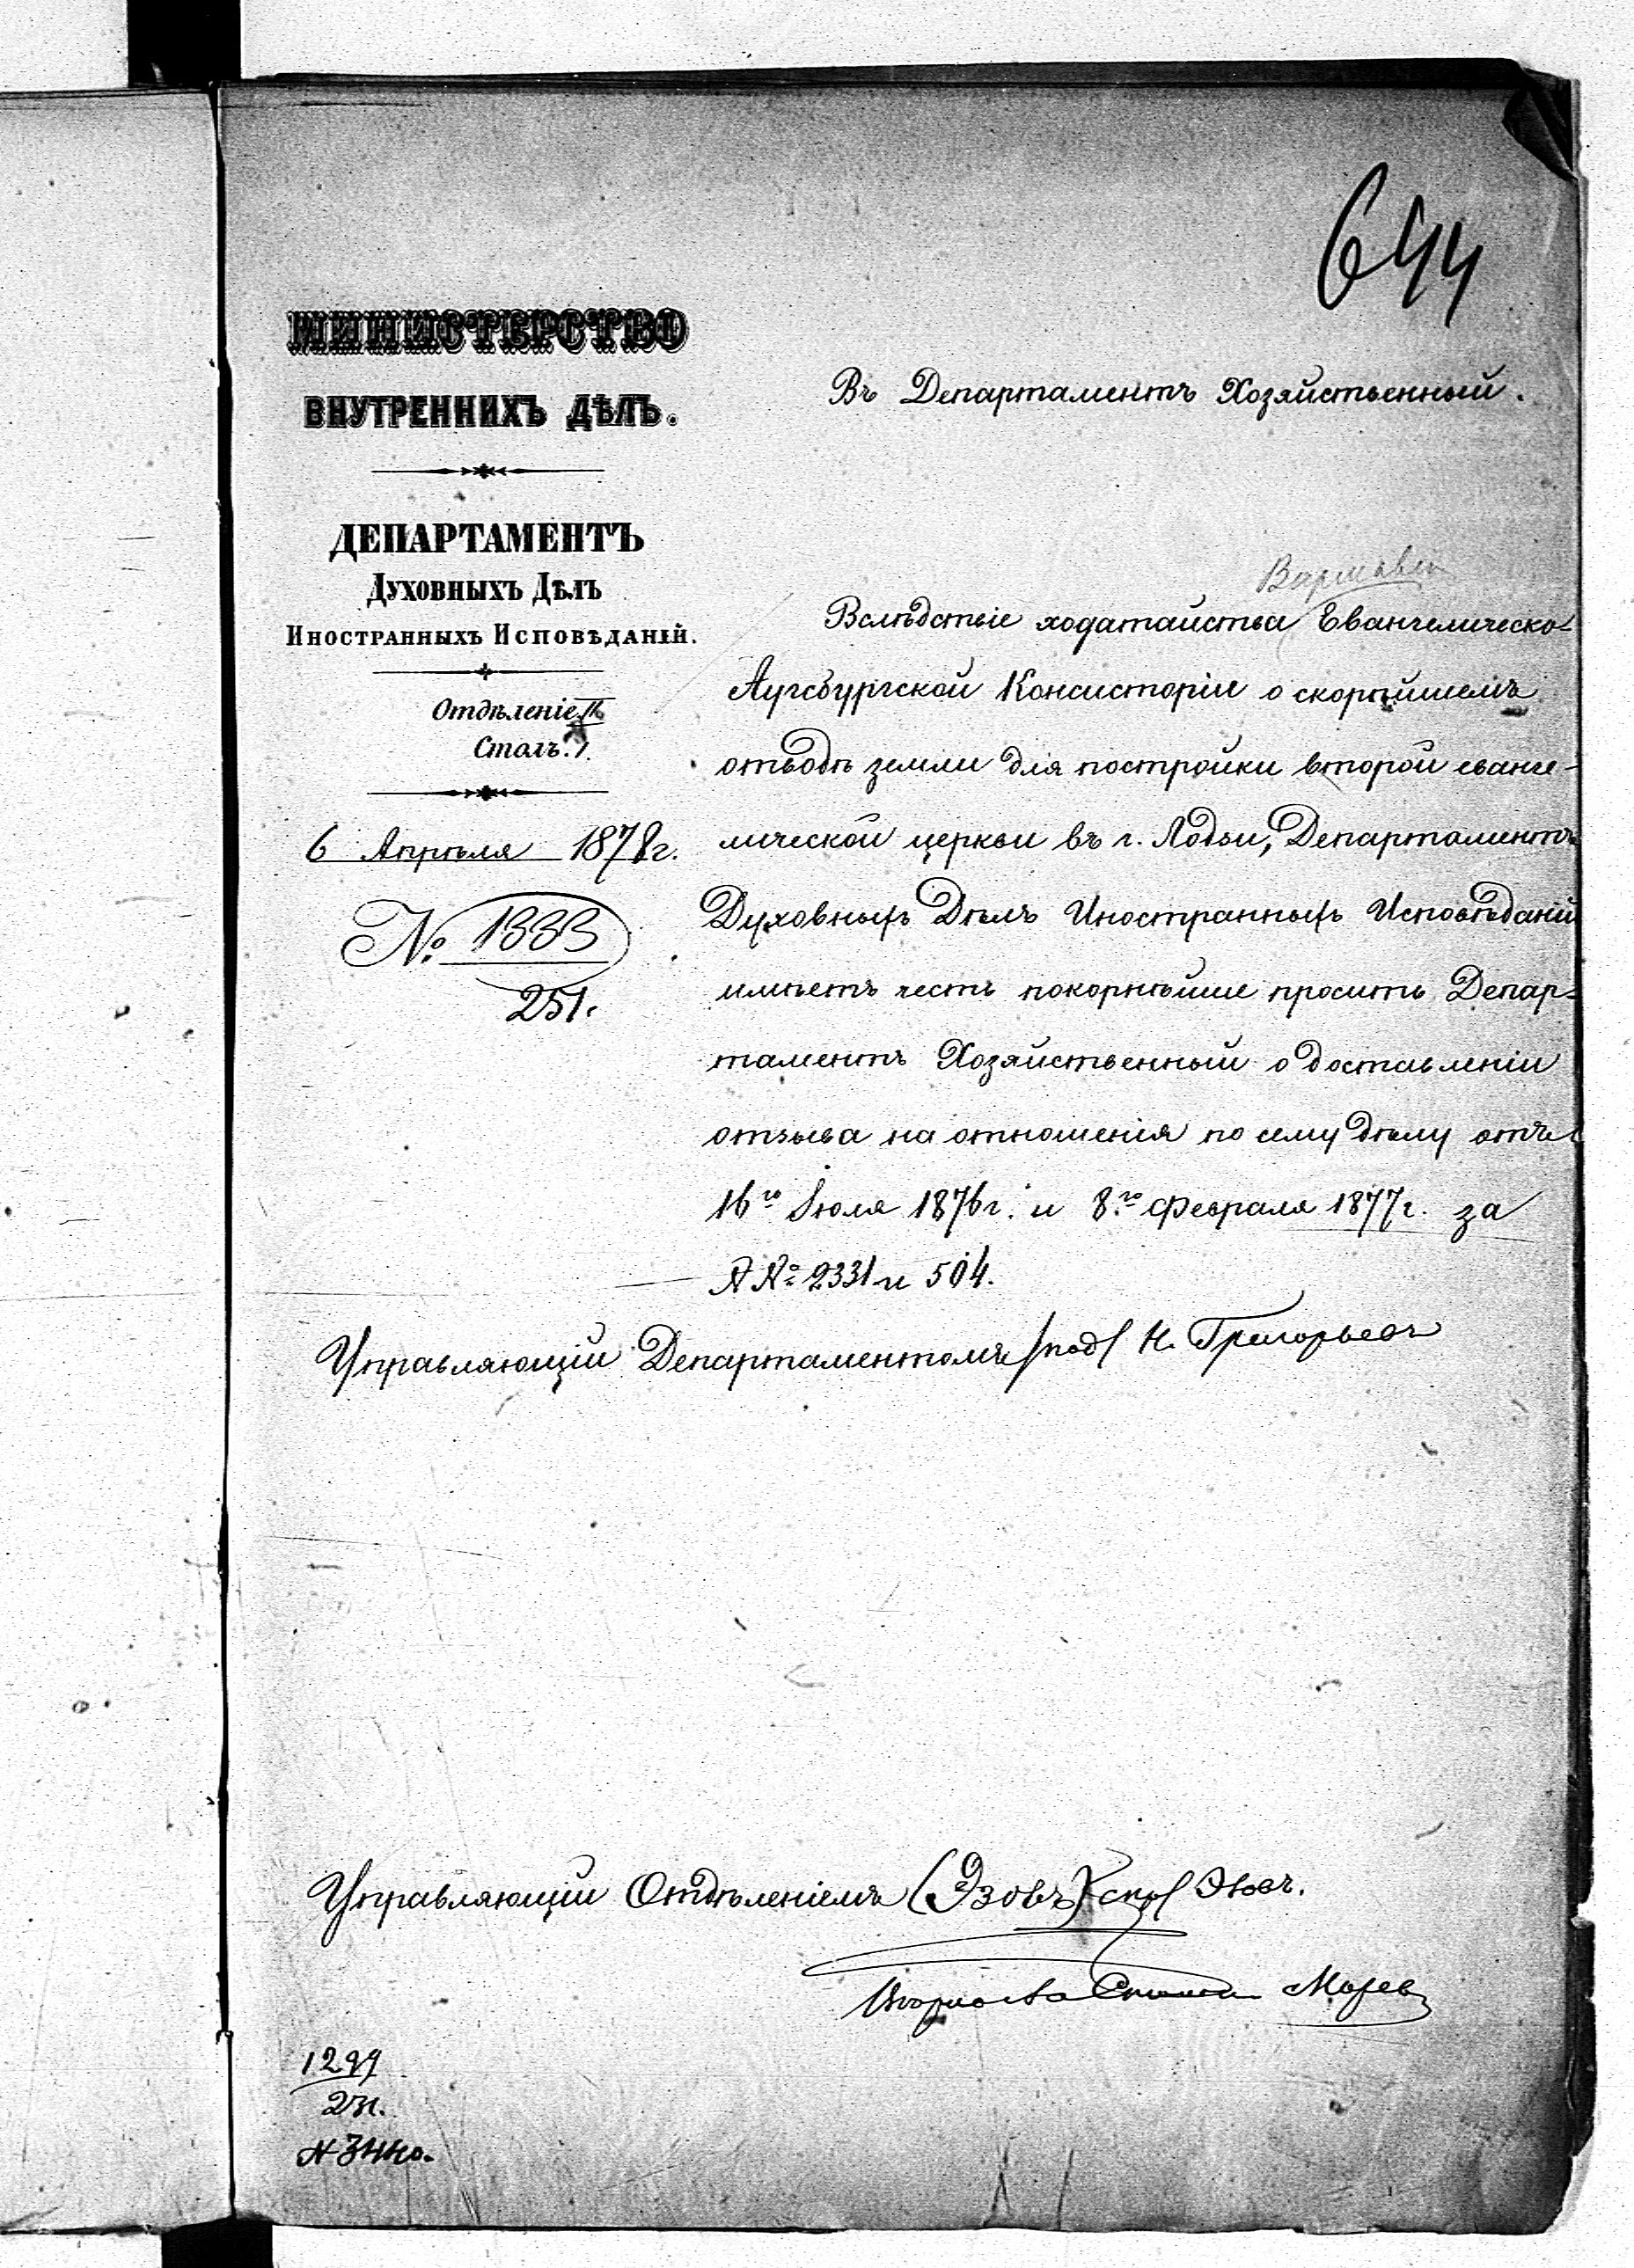 644
МИНИСТЕРСТВО
ВНУТРЕННИХЪ ДѢЛЪ.
ДЕПАРТАМЕНТЪ
ДУХОВНЫХЪ ДѢЛЪ
ИНОСТРАННЫХЪ ИСПОВѢДАНІЙ.
Отдѣленіе
Столъ. 1.
6 Апрѣля 1878 г.
№ 1333
251.
Въ Департаментъ Хозяйственный.
Варшавск
Вслѣдствіе ходатайства Евангелическо-
Аугсбургской Консисторіи о скорѣйшемъ
отводѣ земли для постройки второй еванге-
лической церкви въ г. Лодзи, Департаментъ
Духовныхъ Дѣлъ Иностранныхъ Исповѣданій
имѣетъ честь покорнѣйше просить Депар-
таментъ Хозяйственный о доставленіи
отзыва на отношенія по сему дѣлу отъ
16го Іюля 1876 г. и 8.го Февраля 1877 г. за
№№ 2331 и 504.
Управляющій Департаментомъ /под/ Н. Григорьевъ
Управляющій Отдѣленіемъ (Эзовъ) скр/ Эзовъ.
1299
N 3440.